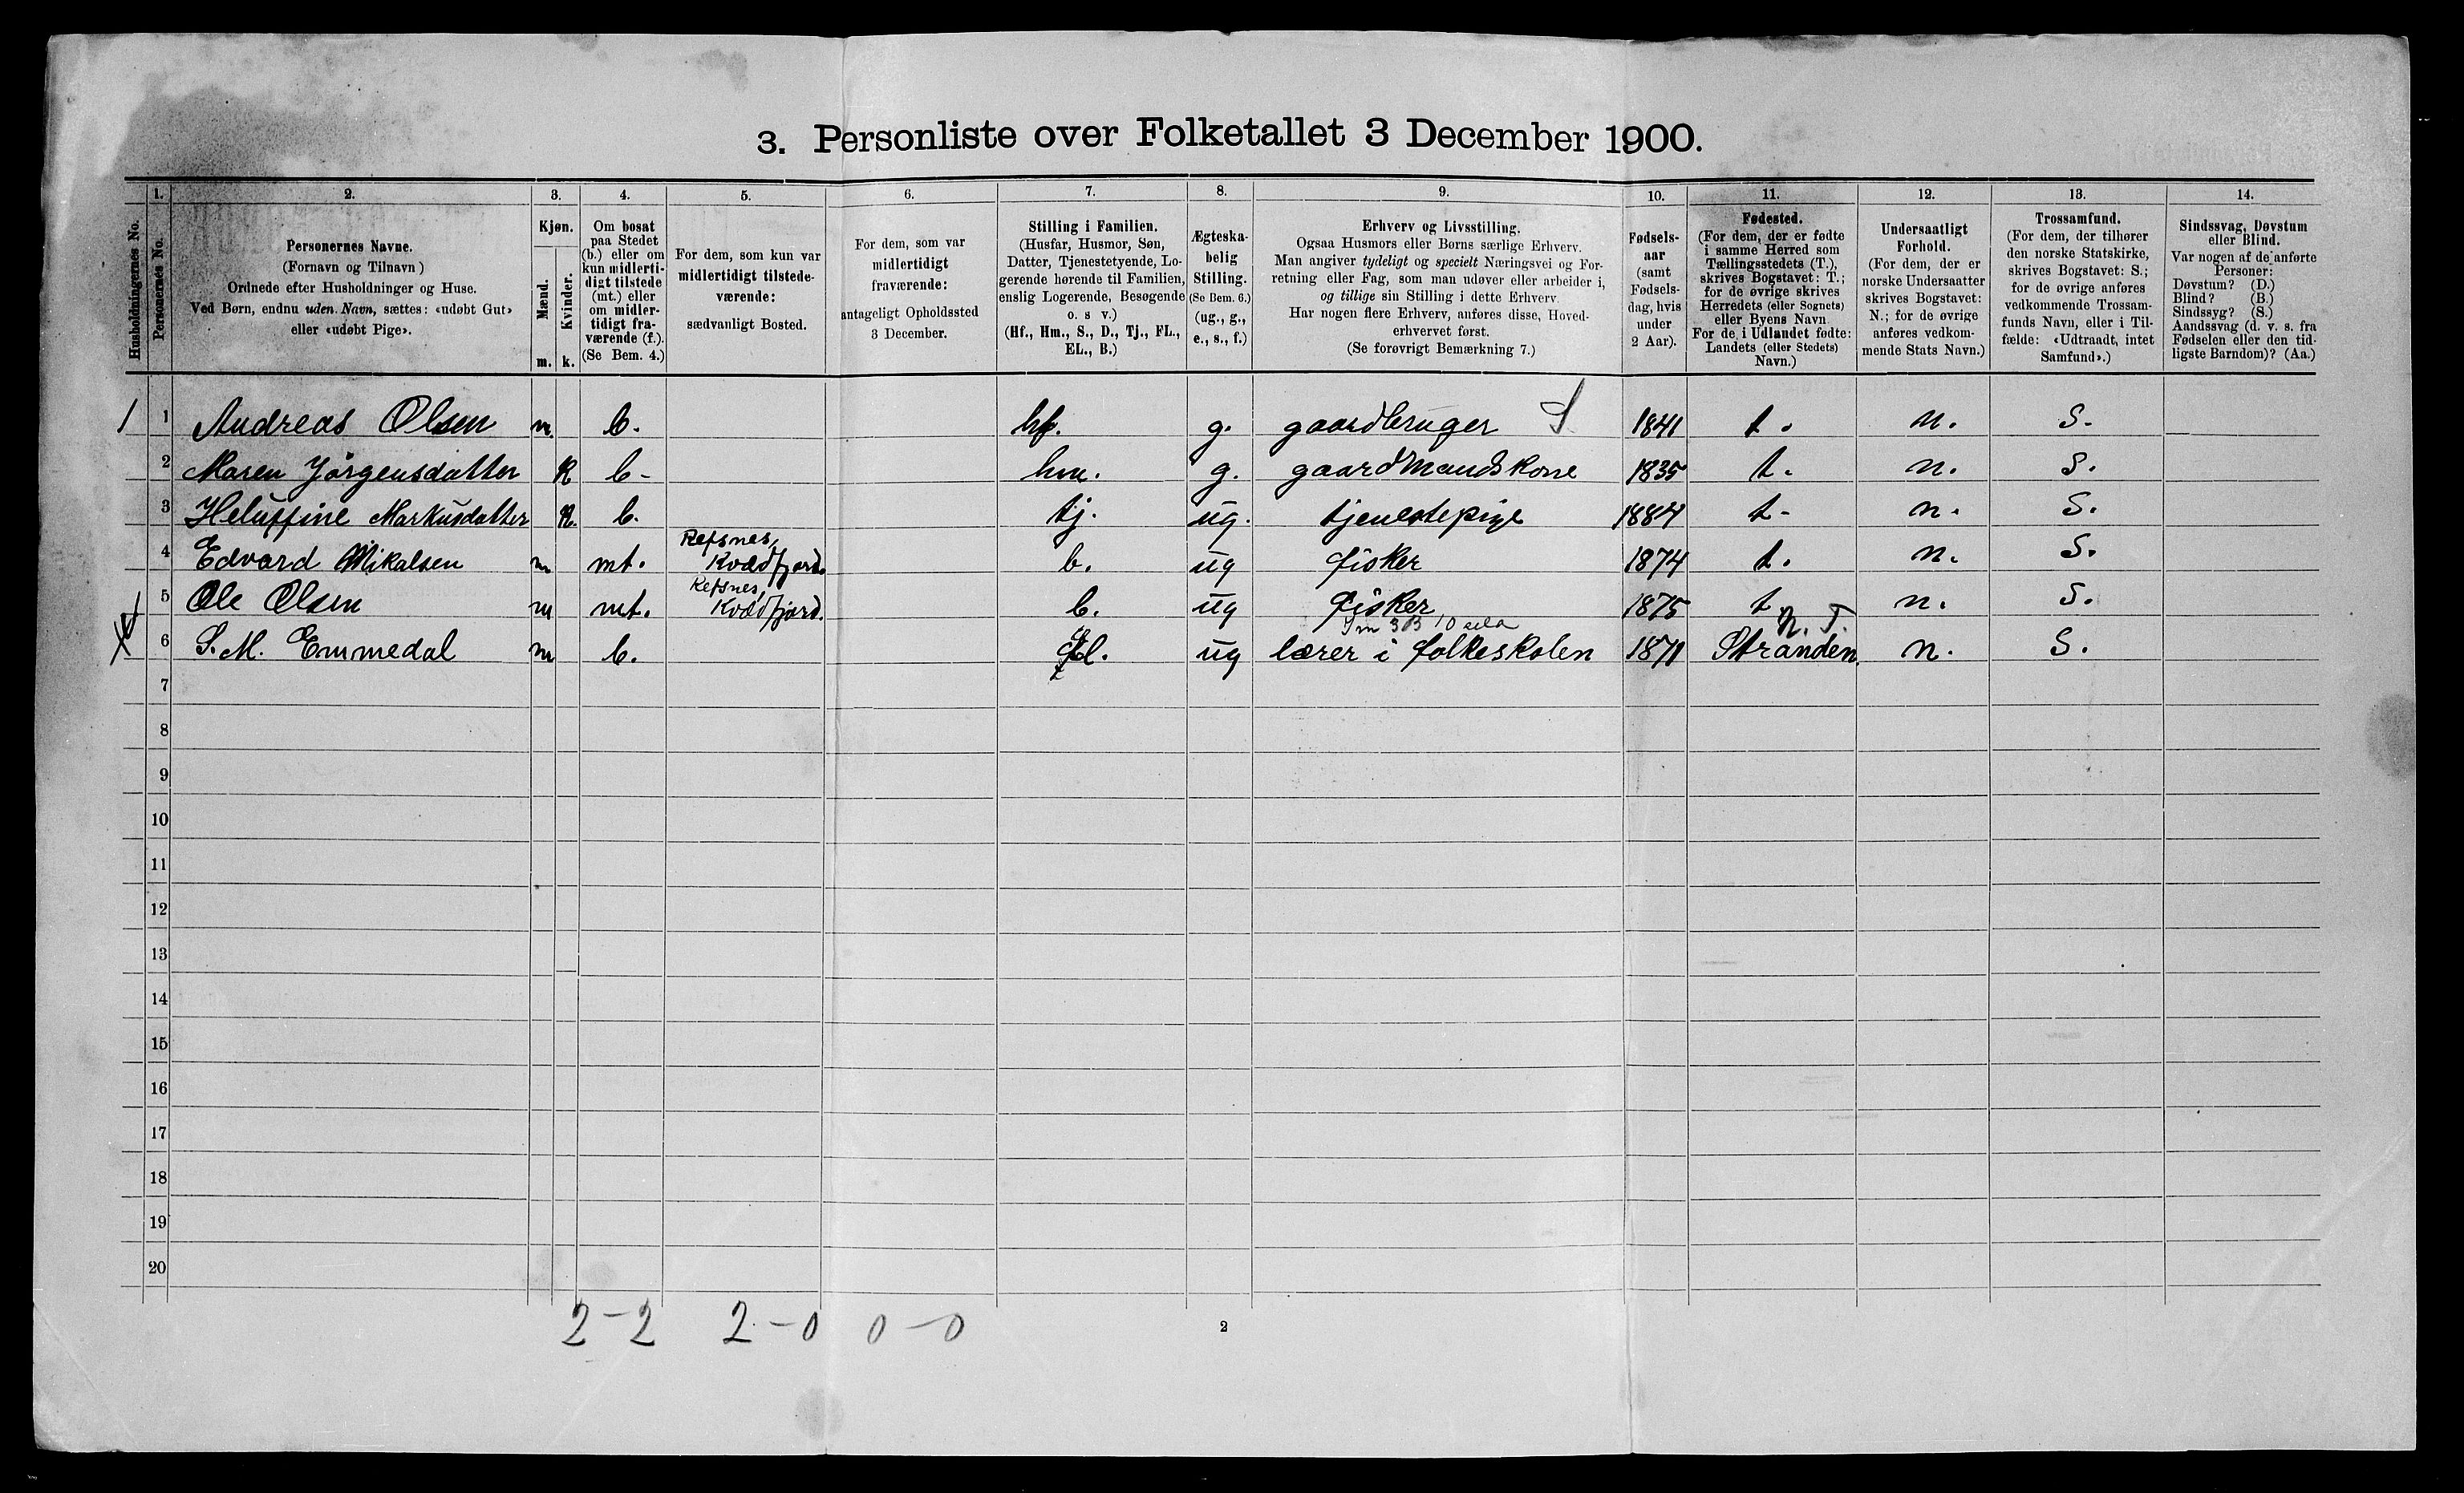 3. Personliste over Folketallet 3 December 1900.
1. 2. 3. 4. 5. 6. 7. 8. 9. 10. 11. 12. 13. 14.
Husholdningernes No.
Personernes No.
Personernes Navne.
(Fornavn og Tilnavn)
Ordnede efter Husholdninger og Huse.
Ved Børn, endnu uden Navn, sættes: «udøbt Gut»
eller «udøbt Pige».
Kjøn.
Mænd.
Kvinder.
m. k.
Om bosat
paa Stedet
(b.) eller om
kun midlerti-
digt tilstede
(mt.) eller
om midler-
tidigt fra-
værende (f.).
(Se Bem. 4.)
For dem, som kun var
midlertidigt tilstede-
værende:
sædvanligt Bosted.
For dem, som var
midlertidigt
fraværende:
antageligt Opholdssted
3 December.
Stilling i Familien.
(Husfar, Husmor, Søn,
Datter, Tjenestetyende, Lo-
gerende hørende til Familien,
enslig Logerende, Besøgende
o. s v.)
(Hf., Hm., S., D., Tj., FL.,
EL., B.)
Ægteska-
belig
Stilling.
(Se Bem. 6.)
(ug., g.,
e., s., f.)
Erhverv og Livsstilling.
Ogsaa Husmors eller Børns særlige Erhverv.
Man angiver tydeligt og specielt Næringsvei og For-
retning eller Fag, som man udøver eller arbeider i,
og tillige sin Stilling i dette Erhverv.
Har nogen flere Erhverv, anføres disse, Hoved-
erhvervet først.
(Se forøvrigt Bemærkning 7.)
Fødsels-
aar
(samt
Fødsels-
dag, hvis
under
2 Aar).
Fødested.
(For dem, der er fødte
i samme Herred som
Tællingsstedets (T.),
skrives Bogstavet: T.;
for de øvrige skrives
Herredets (eller Sognets)
eller Byens Navn
For de i Udlandet fødte:
Landets (eller Stedets)
Navn.)
Undersaatligt
Forhold.
(For dem, der er
norske Undersaatter
skrives Bogstavet:
N.; for de øvrige
anføres vedkom-
mende Stats Navn.)
Trossamfund.
(For dem, der tilhører
den norske Statskirke,
skrives Bogstavet: S.;
for de øvrige anføres
vedkommende Trossam-
funds Navn, eller i Til-
fælde: «Udtraadt, intet
Samfund».)
Sindssvag, Døvstum
eller Blind.
Var nogen af de anførte
Personer:
Døvstum? (D.)
Blind? (B.)
Sindssyg? (S.)
Aandssvag (d. v. s. fra
Fødselen eller den tid-
ligste Barndom)? (Aa.)
1 1 Andreas Olsen m. b. hf. g. gaardbruger S 1841 t. n. S.
2 Maren Jörgensdatter K b- hm. g. gaardmandskone 1835 t. n. S.
3 Heluffine Markusdatter K. b. tj. ug. tjenestepige 1884 t- n. S.
Refsnes,
4 Edvard Mikalsen m mt. Kvædfjord. b. ug fisker 1874 t. n. S.
Refsnes,
5 Ole Olsen m mt. Kvædfjord. b. ug fisker 1875 t n. S.
N. T.
6 S. M. Emmedal m b. el. ug lærer i folkeskolen 1871 Stranden n. S.
7
8
9
10
11
12
13
14
15
16
17
18
19
20
2-2 2-0 0-0
2